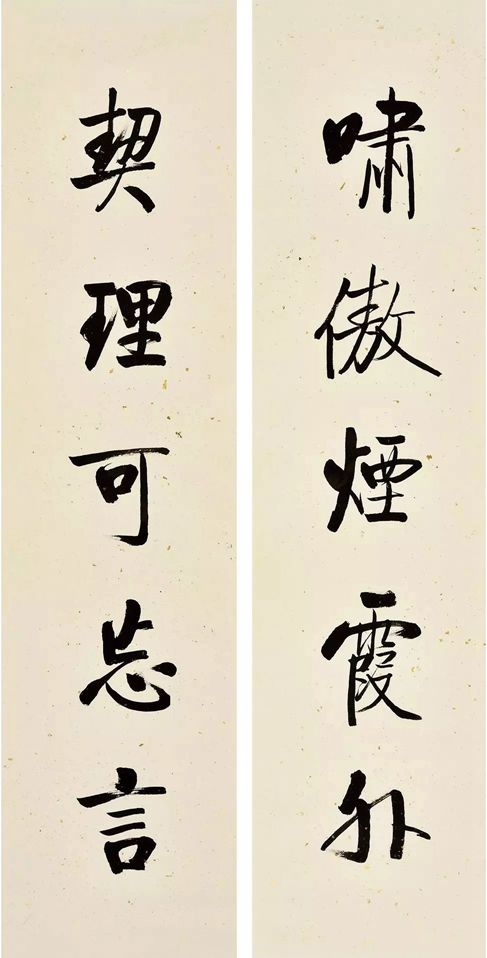 啸傲煙霞外
契理可忘言